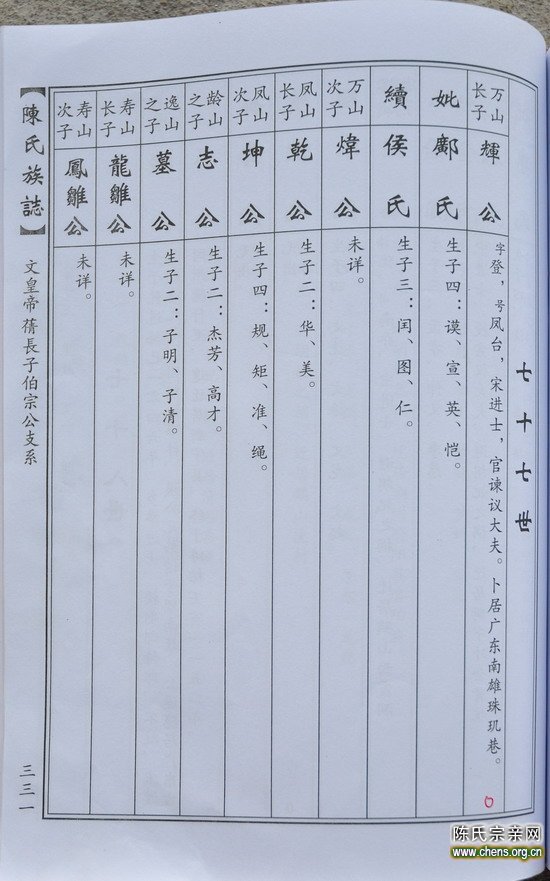 七十七世
万山长子
輝公
字登，号凤台，宋进士，官谏议大夫。卜居广东南雄珠玑巷。
妣鄺氏
生子四：谟、宣、英、恺。
續侯氏
生子三：闰、图、仁。
万山次子
煒公
未详。
凤山长子
乾公
生子二：华、美。
凤山次子
坤公
生子四：规、矩、准、绳。
龄山之子
志公
生子二：杰芳、高才。
逸山之子
墓公
生子二：子明、子清。
寿山长子
龍雛公
未详。
寿山次子
鳳雛公
未详。
【陳氏族誌】
文皇帝蒨長子伯宗公支系
三三一
陈氏宗亲网
www.chens.org.cn